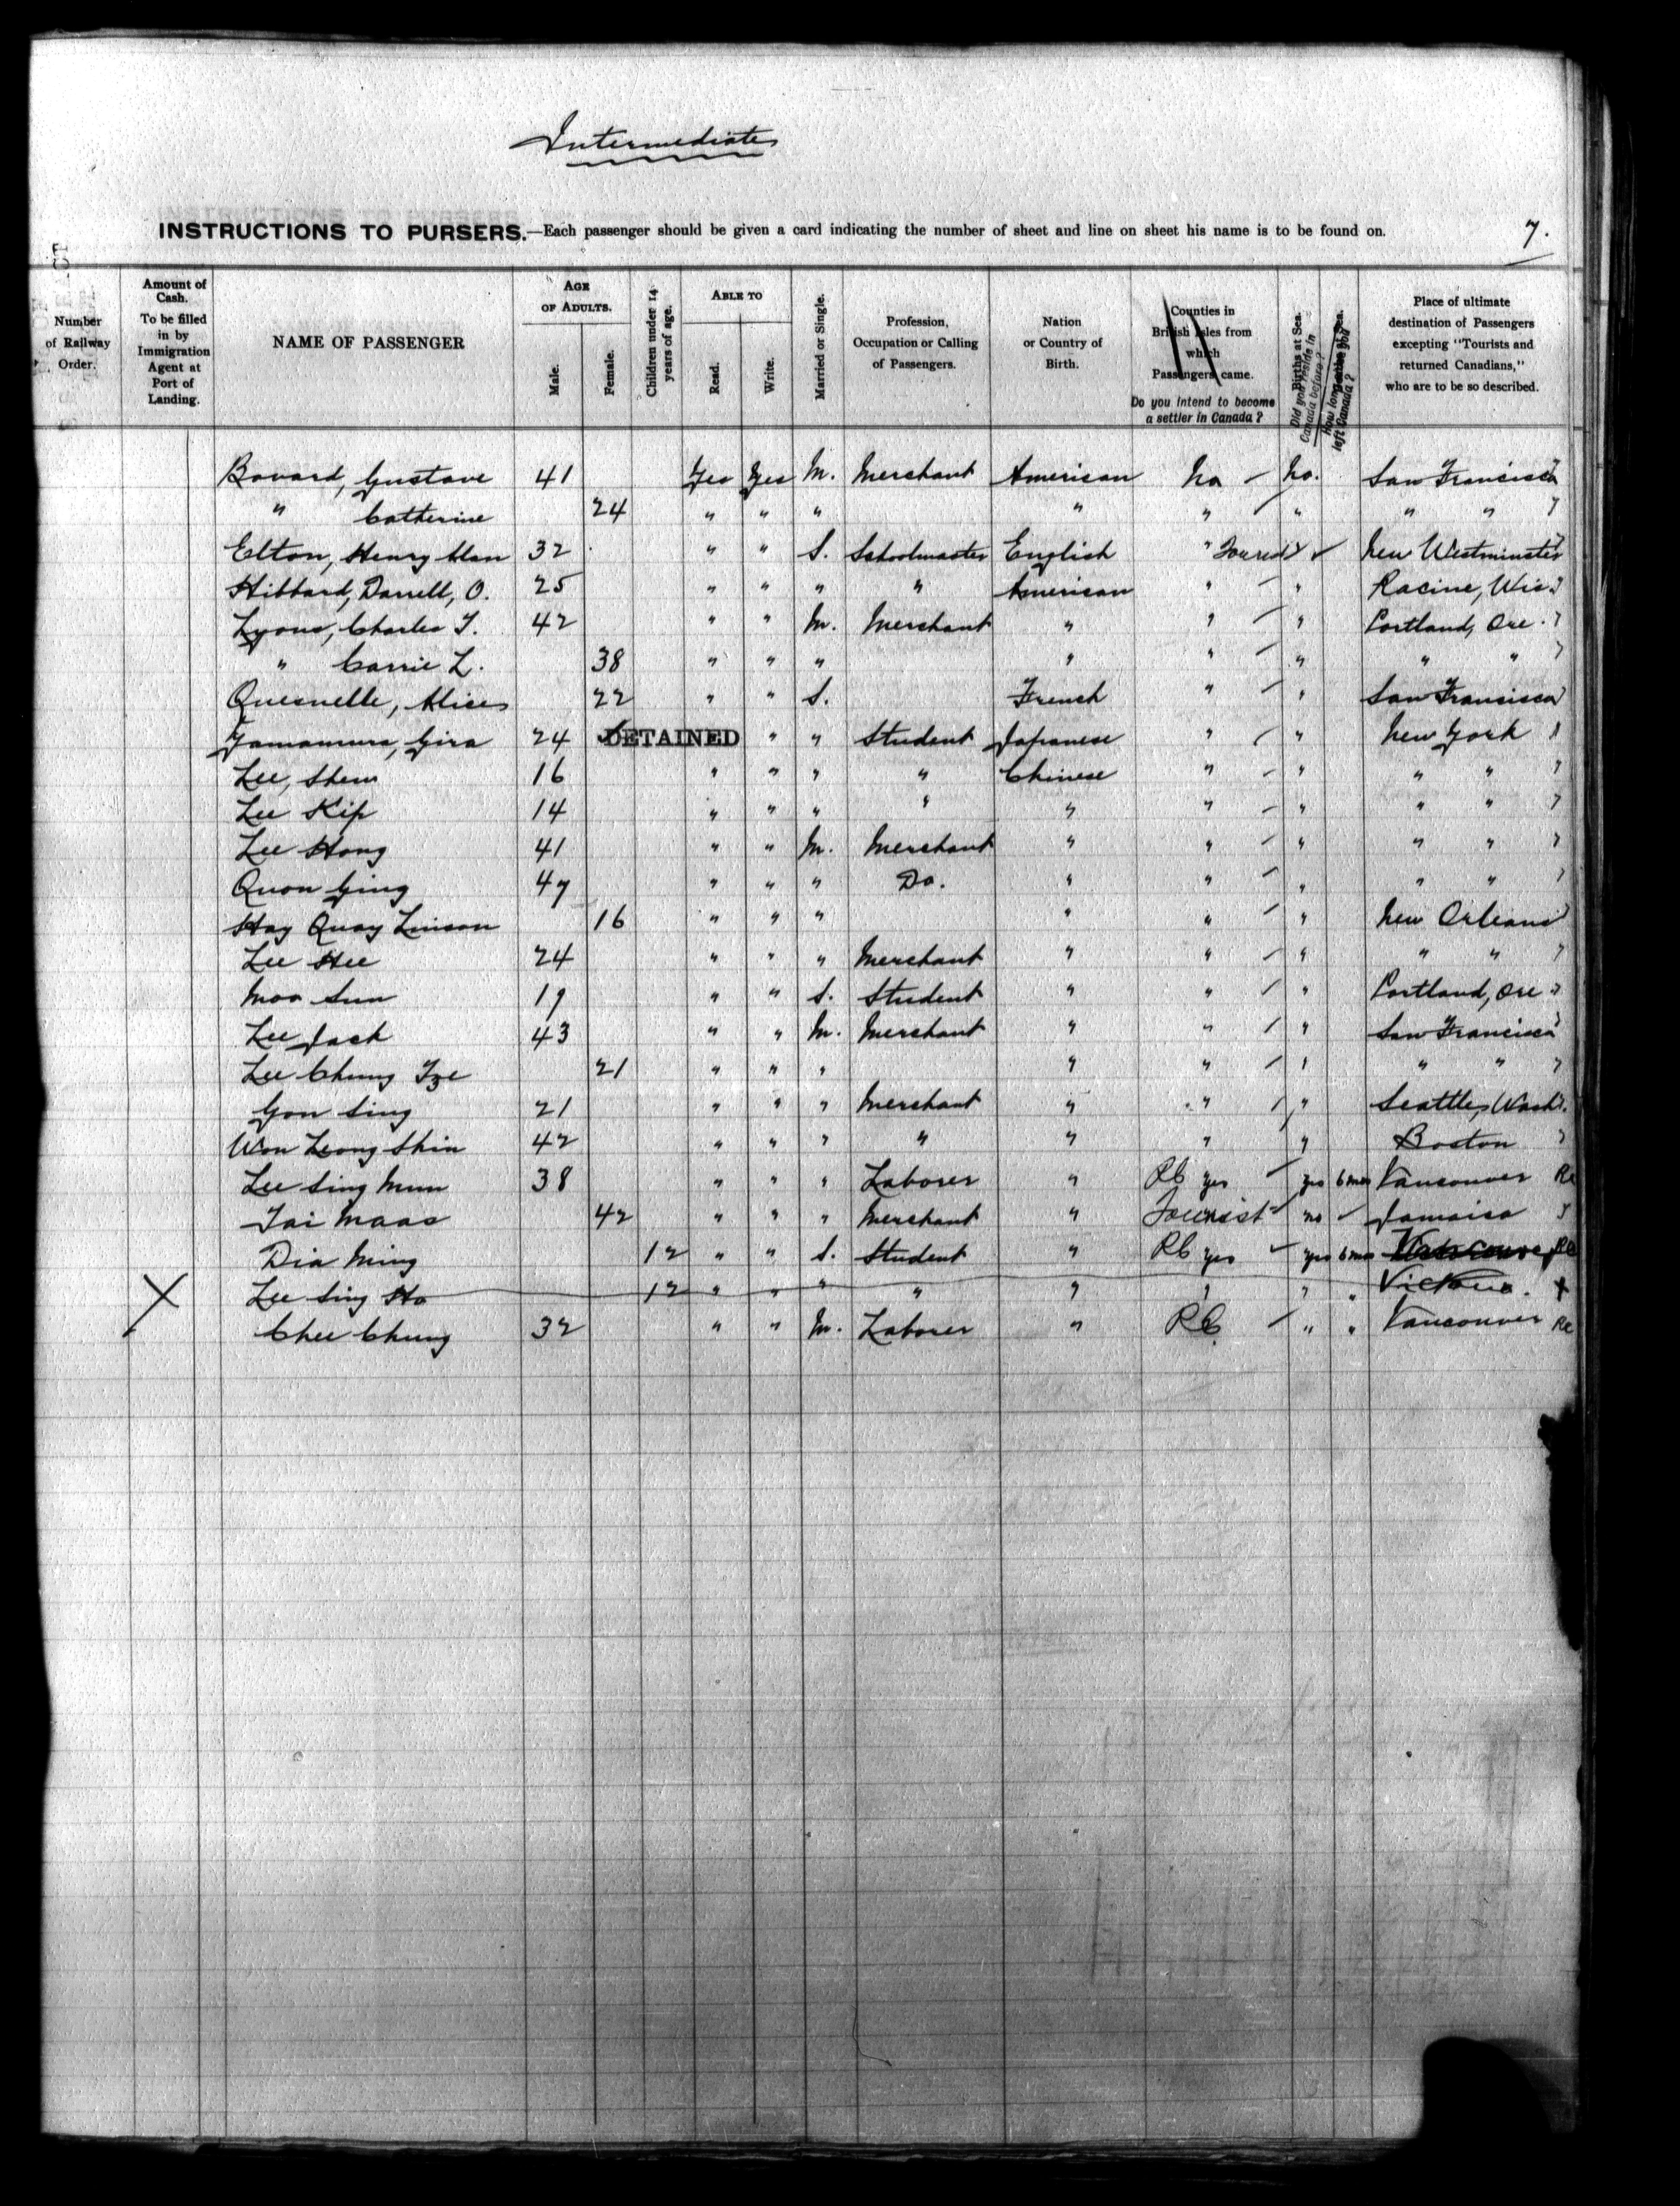 Intermediate
INSTRUCTIONS TO PURSERS.—Each passenger should be given a card indicating the number of sheet and line on sheet his name is to be found on. 7.
Number of Railway Order.
Amount of Cash. To be filled in by Immigration Agent at Port of Landing.
NAME OF PASSENGER
AGE OF ADULTS.
Male.
Female.
Children under 14 years of age.
ABLE TO
Read.
Write.
Married or Single.
Profession, Occupation or Calling of Passengers.
Nation or Country of Birth.
Counties in British Isles from which Passengers came.
Do you intend to become a settler in Canada?
Births at Sea.
Did you reside in Canada before?
How long since you left Canada?
Place of ultimate destination of Passengers excepting "Tourists and returned Canadians," who are to be so described.
Bovard, Gustave 41 Yes Yes M. Merchant American No No. San Francisco
" Catherine 24 " " " " " " " "
Elton, Henry Alan 32 " " S. Schoolmaster English " New Westminster
Hibbard, Darrell, O. 25 " " " " American " " Racine, Wis.
Lyons, Charles T. 42 " " M. Merchant " " " Portland, Ore.
" Carrie L. 38 " " " " " " " "
Quesnelle, Alice 22 " " S. French " " San Francisco
Yamamura, Gira 24 DETAINED " " Student Japanese " " New York
Lee, Shem 16 " " " " Chinese " " " "
Lee Kip 14 " " " " " " " " "
Lee Hong 41 " " M. Merchant " " " " "
Quon Ging 47 " " " Do. " " " " "
Hay Quay Linson 16 " " " " " " New Orleans
Lee Hee 24 " " " Merchant " " " " "
Moo Sun 19 " " S. Student " " " Portland, Ore
Lee Jack 43 " " M. Merchant " " " San Francisco
Lee Chung Tze 21 " " " " " " " "
Gon Sing 21 " " " Merchant " " " Seattle, Wash.
Won Leong Shin 42 " " " " " " " Boston
Lee Sing Mun 38 " " " Laborer " RC yes yes 6 mos Vancouver RC
Tai Maas 42 " " " Merchant " Tourist no Jamaica
Dia Ming 12 " " S. Student " RC yes yes 6 mos Vancouver RC
X Lee Sing Ho 12 " " " " " " " " Victoria. X
Chee Chung 32 " " M. Laborer " RC " " Vancouver RC